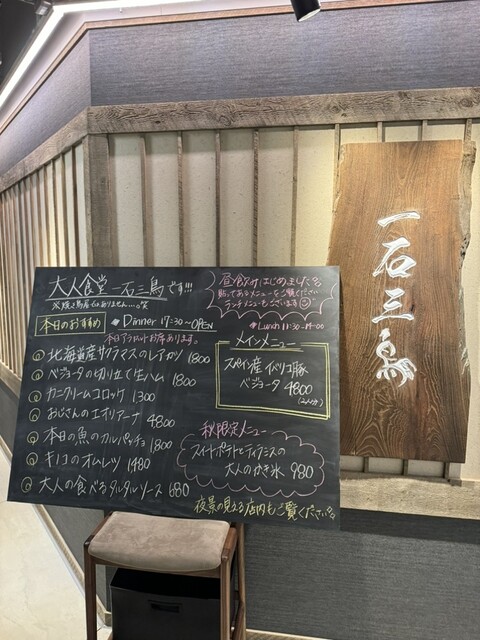 大人食堂 一石三鳥です!!!
※焼き鳥屋ではありません…。笑
本日のおすすめ
Dinner 17:30~OPEN
本日アラカルトお席あります。
北海道産サクラマスのレアカツ 1800
ベジョータの切り立て生ハム 1800
カニクリームコロッケ 1300
おじさんのエオリアーナ 4800
本日の魚のカルパッチョ 1800
キノコのオムレツ 1480
大人の食べるタルタルソース 680
昼飲みはじめました
貼ってあるメニューをご覧ください
ランチメニューもございます
Lunch 11:30-14:00
メインメニュー
スペイン産イベリコ豚
ベジョータ 4800
(2人分)
秋限定メニュー
スイートポテトとティラミスの
大人のかき氷 980
夜景の見える店内もご覧ください
一石三鳥